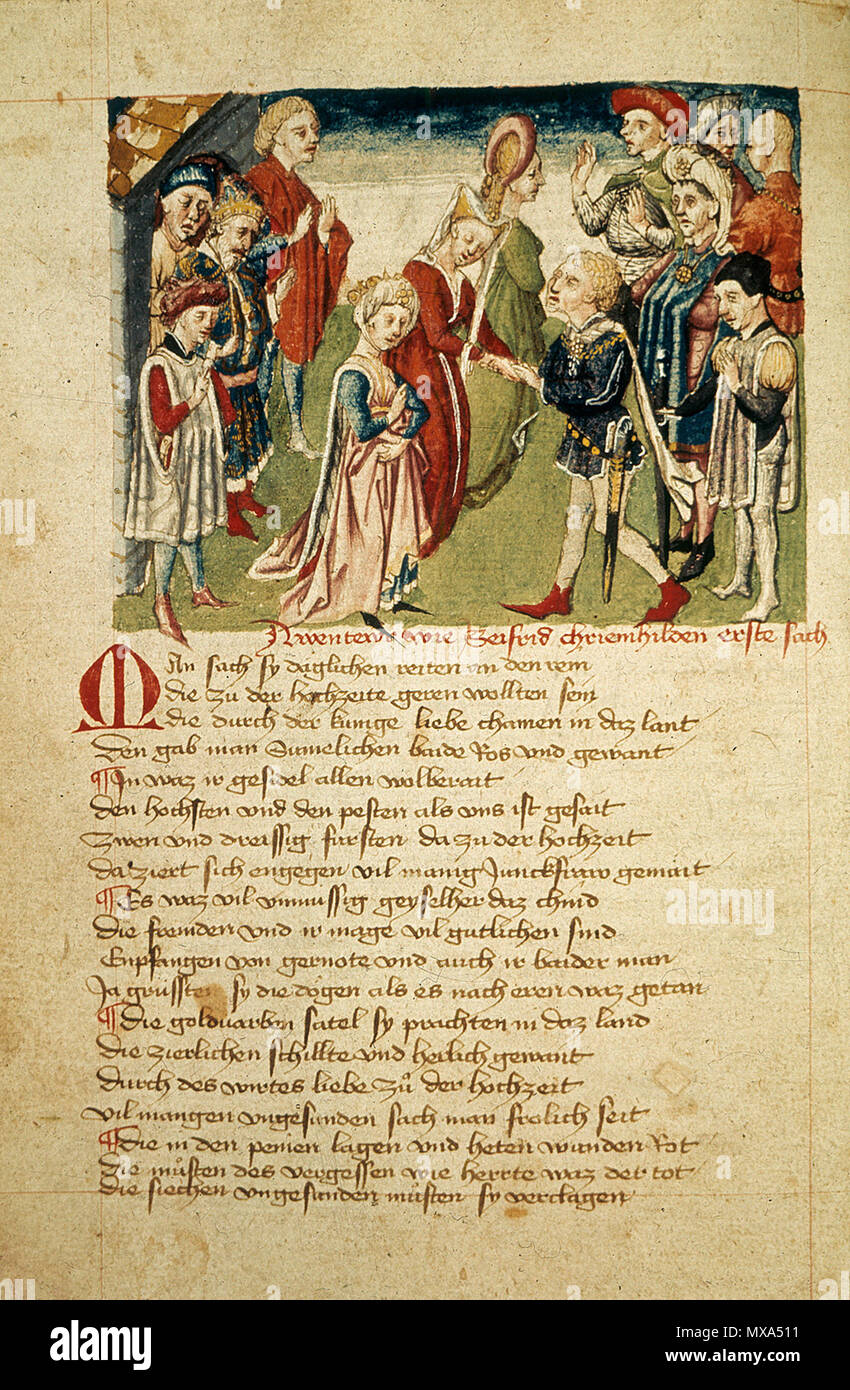 Awentewr wie Seifrid chriemhilden erste sach
Man sach sy däglichen reiten an den rein
die zu der hochzeite geren wollten sein
die durch der kunige liebe chamen in daz lant
den gab man Sumelichen baide Ros und gewant
In waz ir gesidel allen wolberait
den hochsten und den pesten als uns ist gesait
zwen und dreissig fursten da zu der hochzeit
da ziert sich engegen vil manig Junckfraw gemait
Es waz vil vnmussig geyselher daz chind
die fremden und ir mage vil gutlichen sind
Enpfangen von gernote und auch ir baider man
Ja grüssten sy die dogen als es nach eren waz getan
die goldvarben satel sy prachten in daz land
die zierlichen schillte und herlich gewant
durch des wirtes liebe zů der hochzeit
vil mangen vngesunden sach man frolich seit
die in den petten lagen und heten wunden Rot
die můsten des vergessen wie herrte waz der tot
die siechen vngesunden můsten sy verclagen
alamy
Image ID: MXA511
www.alamy.com